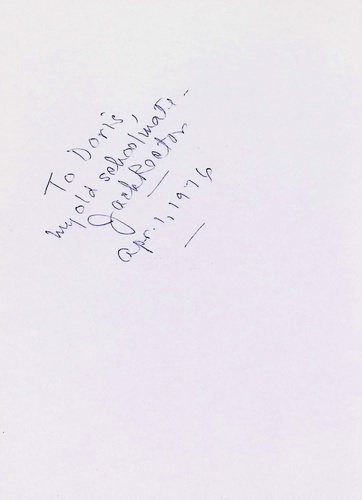 To Doris,
my old schoolmate -
Jack Rector
Apr. 1, 1976